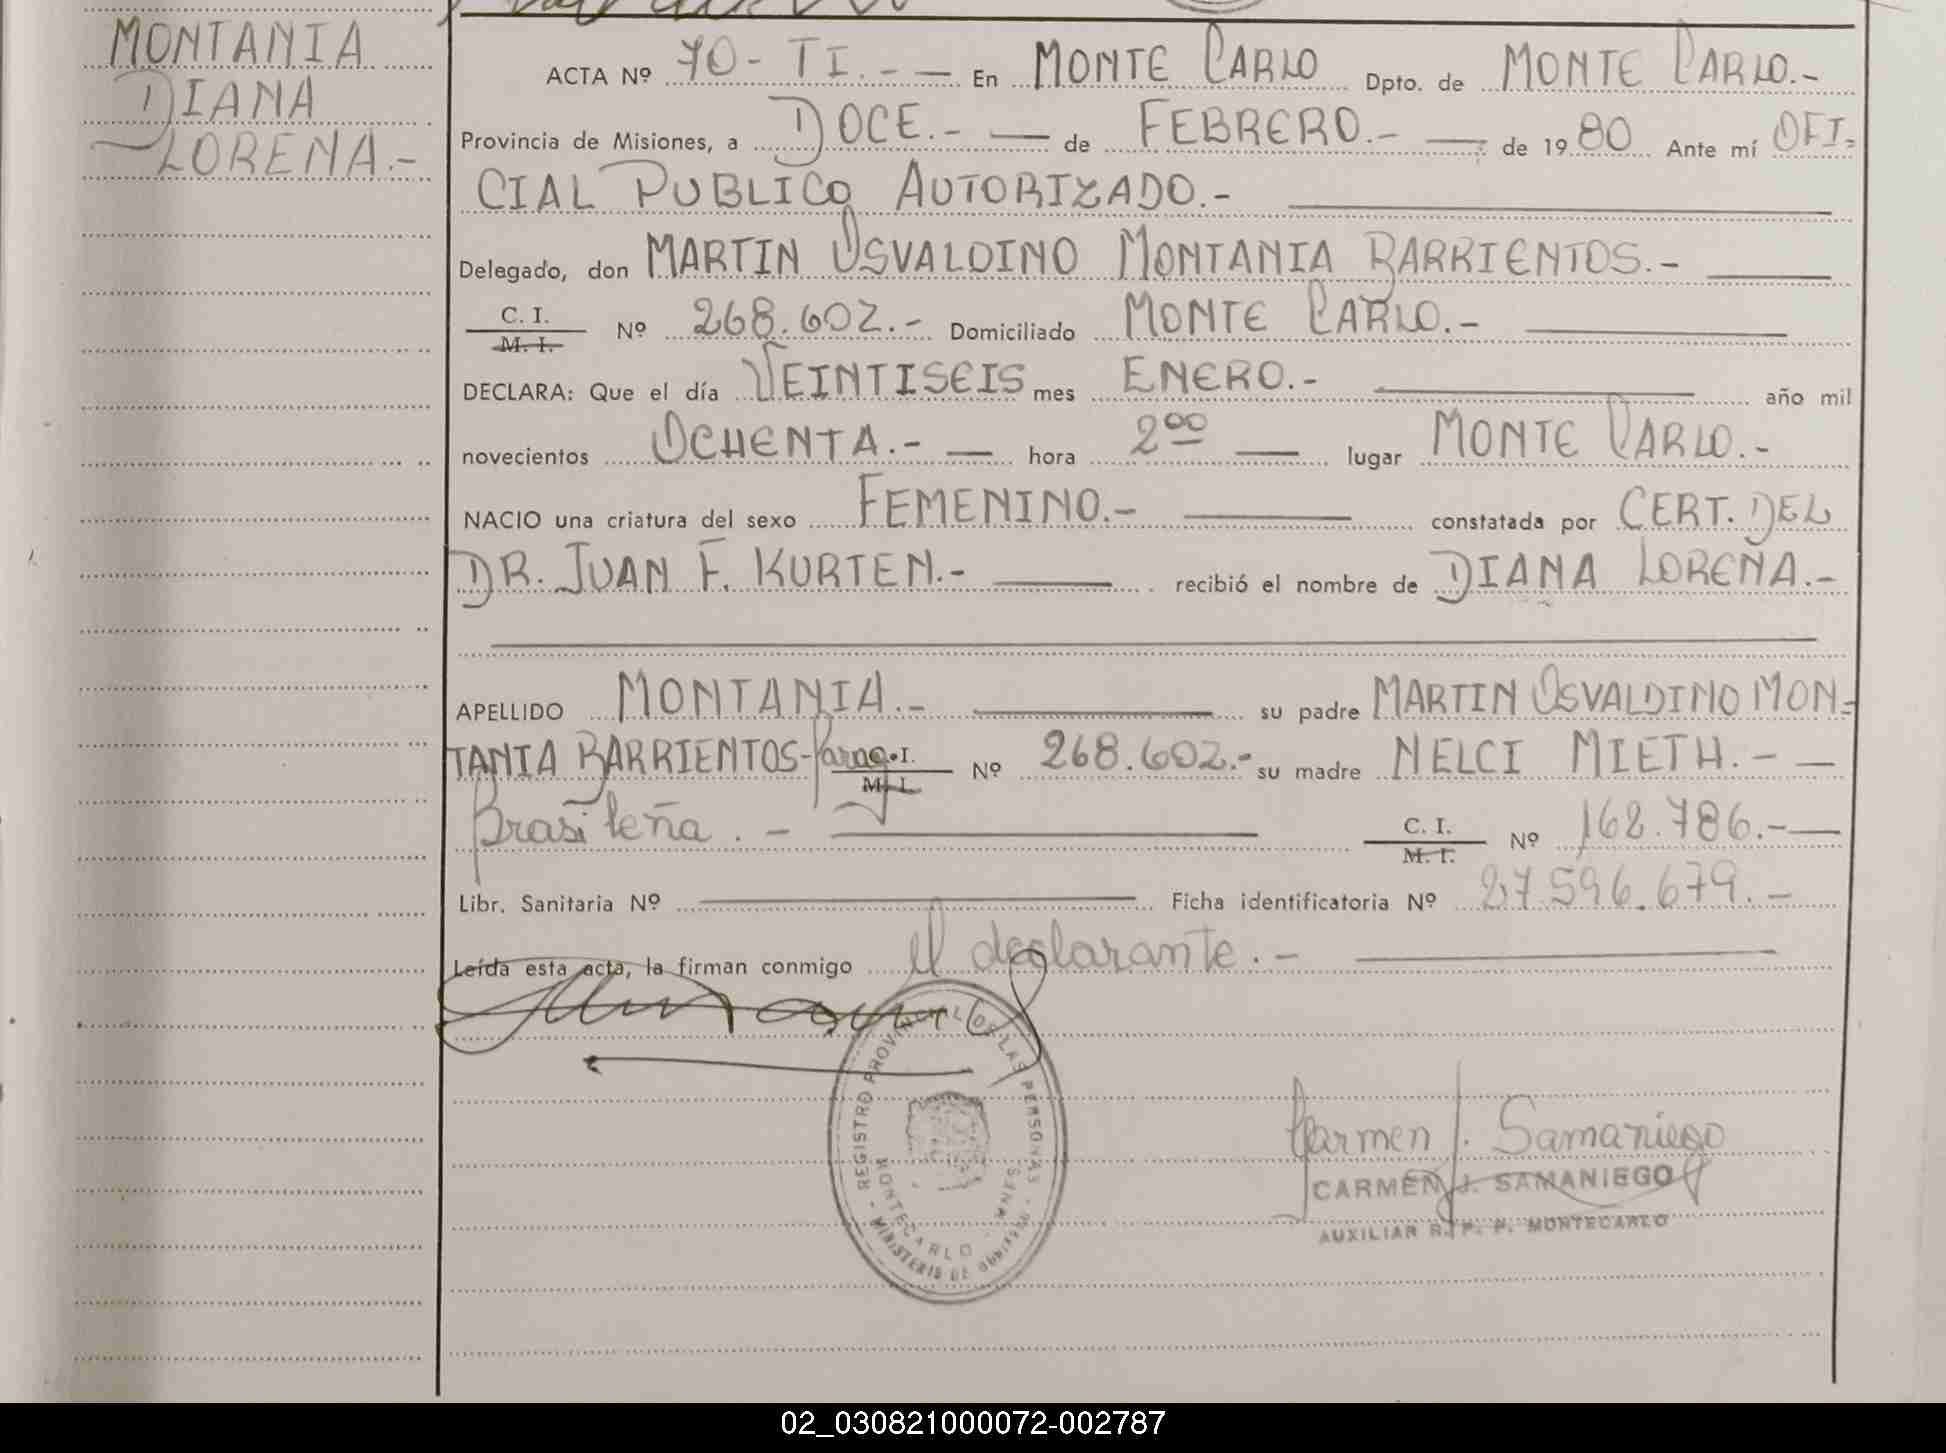 MONTANIA
DIANA
LORENA.-
ACTA Nº 70- TI.- — En MONTE CARLO Dpto. de MONTE CARLO.-
Provincia de Misiones, a DOCE.- — de FEBRERO.- — de 1980 Ante mí OFI=
CIAL PUBLICO AUTORIZADO.- —
Delegado, don MARTIN OSVALDINO MONTANIA BARRIENTOS.- —
C. I.
M. I. Nº 268.602.- Domiciliado MONTE CARLO.- —
DECLARA: Que el día VEINTISEIS mes ENERO.- — año mil
novecientos OCHENTA.- — hora 2⁰⁰ — lugar MONTE CARLO.-
NACIO una criatura del sexo FEMENINO.- — constatada por CERT. DEL
DR. JUAN F. KURTEN.- — recibió el nombre de DIANA LORENA.-
APELLIDO MONTANIA.- — su padre MARTIN OSVALDINO MON=
TANIA BARRIENTOS-Parag. I.
M. I. Nº 268.602.- su madre NELCI MIETH.- —
Brasileña.- — C. I.
M. I. Nº 162.786.- —
Libr. Sanitaria Nº — Ficha identificatoria Nº 27.596.679.-
Leída esta acta, la firman conmigo el declarante.- —
REGISTRO PROVINCIAL DE LAS PERSONAS - MINISTERIO DE GOBIERNO -
MONTECARLO - MNES
Carmen J. Samaniego
CARMEN J. SAMANIEGO
AUXILIAR R. P. P. MONTECARLO
02_030821000072-002787